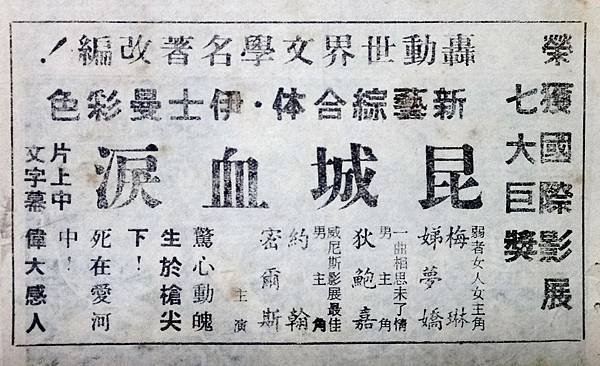 榮獲國際影展
七大巨獎
轟動世界文學名著改編!
新藝綜合体·伊士曼彩色
昆城血淚
弱者女人女主角
梅琳
娣夢嬌
一曲相思未了情
男主角
狄鮑嘉
威尼斯影展最佳
男主角
約翰
密爾斯
主演
驚心動魄
生於槍尖
下!
死在愛河
中!
偉大感人
片上中
文字幕